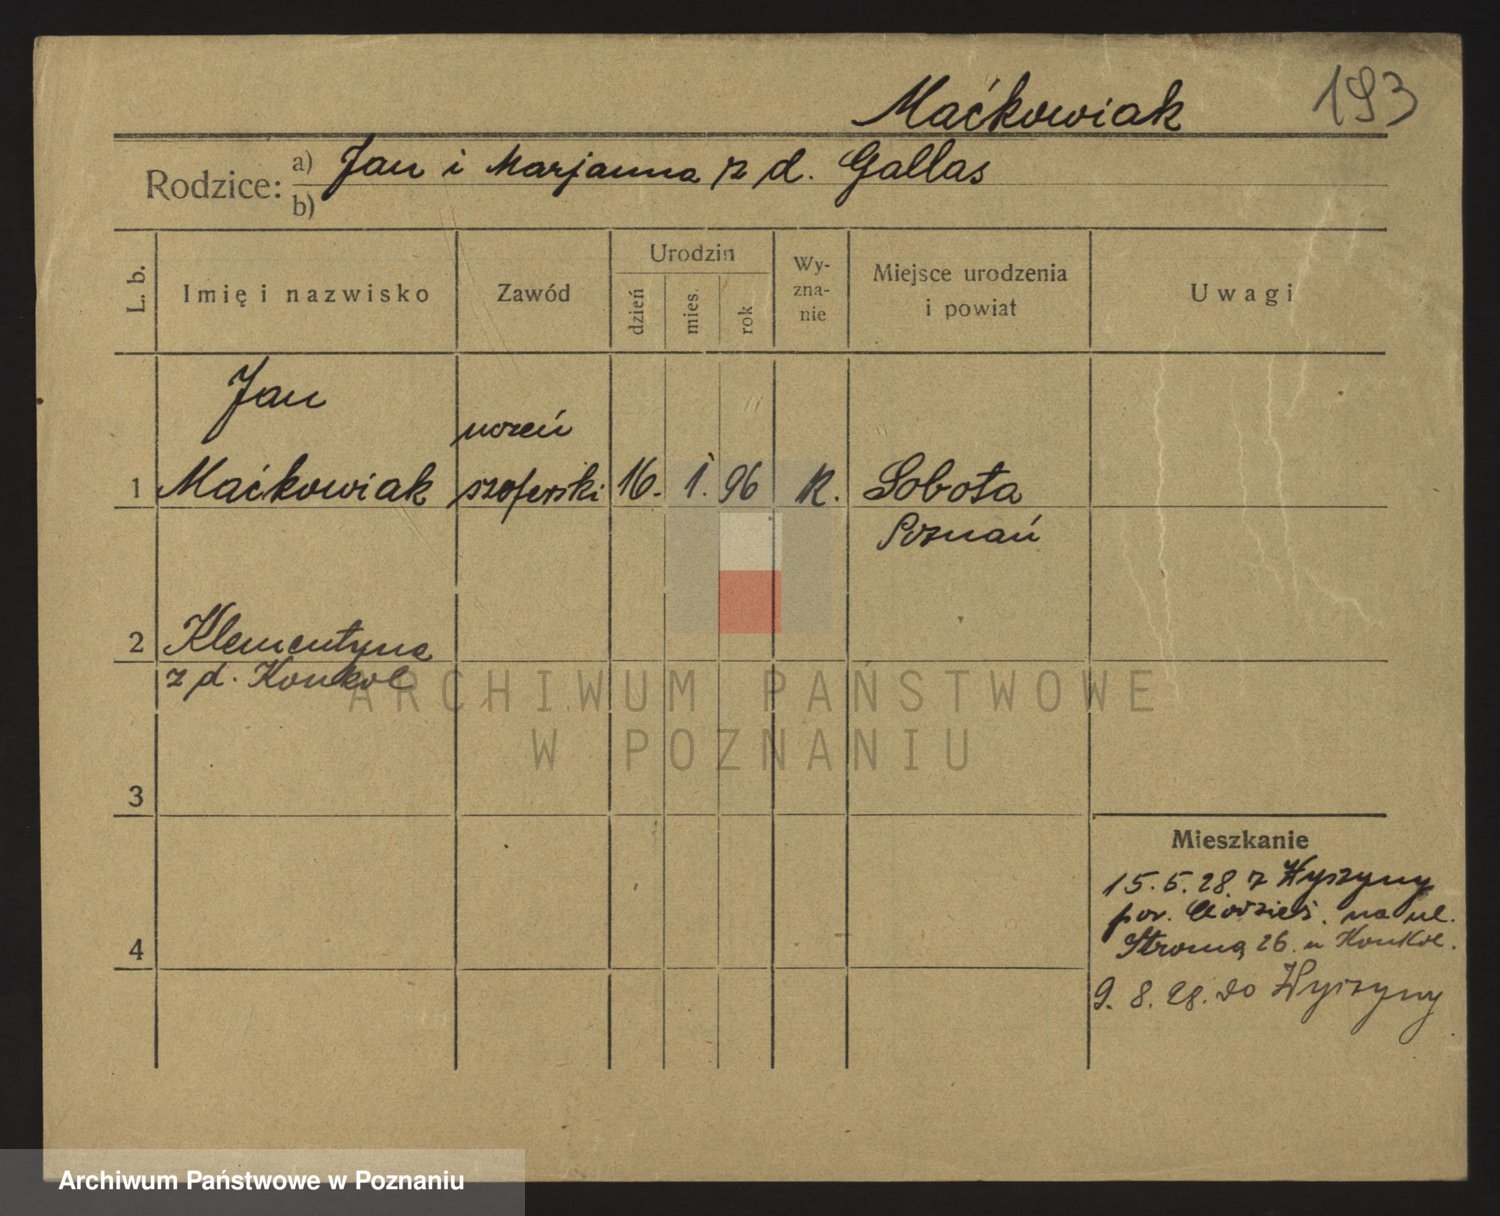 Maćkowiak
193
Rodzice: a) Jan i Marjanna z d. Gallas
b)
L. b.
Imię i nazwisko
Zawód
Urodzin
dzień
mies.
rok
Wy-
zna-
nie
Miejsce urodzenia
i powiat
Uwagi
Jan
uczeń
1 Maćkowiak szoferski 16. 1. 96 k. Sobota
Poznań
2 Klementyna
z d. Konkol
ARCHIWUM PAŃSTWOWE
W POZNANIU
3
Mieszkanie
15.5.28. z Wyszyny
pow. na ul.
4
Stromą 26. u Konkol.
9. 8. 28. do Wyszyny
Archiwum Państwowe w Poznaniu